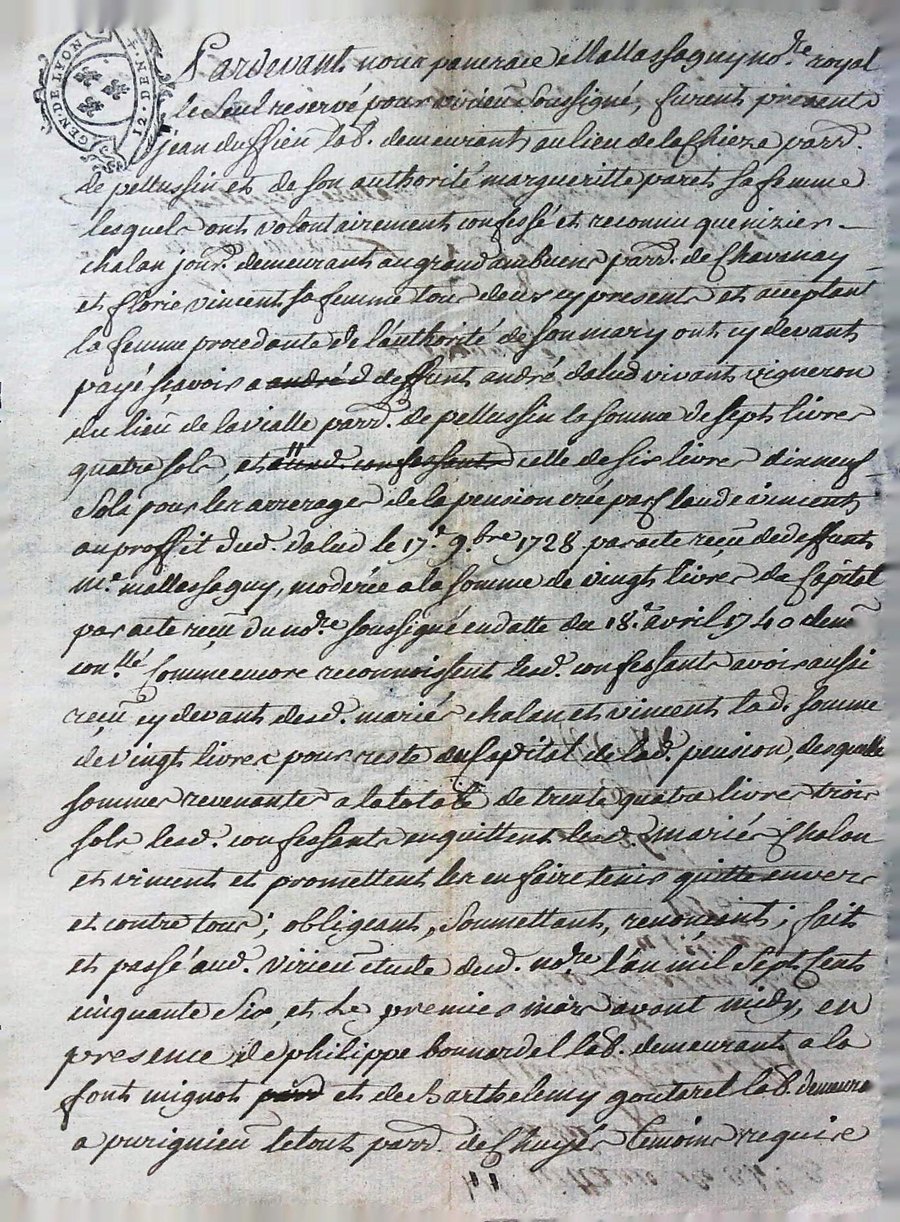 GEN. DE LYON
12 DEN.
Pardevant nous pancrace Mallassaguy no.re royal
le seul reservé pour virieu soussigné, furent presents
jean duffieu lab. demeurant au lieu de la Chieze parr.
de pellussin et de son authorité margueritte paret sa femme
lesquels ont volontairement confessé et reconnu que nizier
chalan jour. demeurant au grand parr. de Chavanay
et florie vincent sa femme tous deux cy presents et aceptant
la femme procedante de l'authorité de son mary ont cy devant
payé sçavoir a andré d deffunt andré dalud vivant vigneron
du lieu de la vialle parr. de pellussin la somme de sept livres
quatre sols, et aud. confessants celle de six livres dix neuf
sols pour les arrerages de la pension créé par Claude vincent
au proffit dud. dalud le 17.e 9.bre 1728 par acte reçu de deffunt
m.e mallassaguy, moderée a la somme de vingt livres de Capital
par acte reçu du no.re soussigné en datte du 18.e avril 1740 deux
con.llé Comme encore reconnoissent lesd. confessants avoir aussi
reçu cy devant desd. mariés chalan et vincent lad. somme
de vingt livres pour reste du Capital de lad. pension, desquelles
sommes revenantes a la totale de trente quatre livres trois
sols lesd. confessants en quittent lesd. mariés Chalan
et vincent et promettent les en faire tenir quitte envers
et contre tous; obligeant, soumettant, renonçant; fait
et passé aud. virieu etude dud. no.re l'an mil sept Cents
cinquante six, et le premier mars avant midy, en
presence de philippe bonnardel lab. demeurant a la
font mignot parr et de barthelemy gouterel lab. demeurant
a purignieu le tout parr. de Chuyer temoins requis